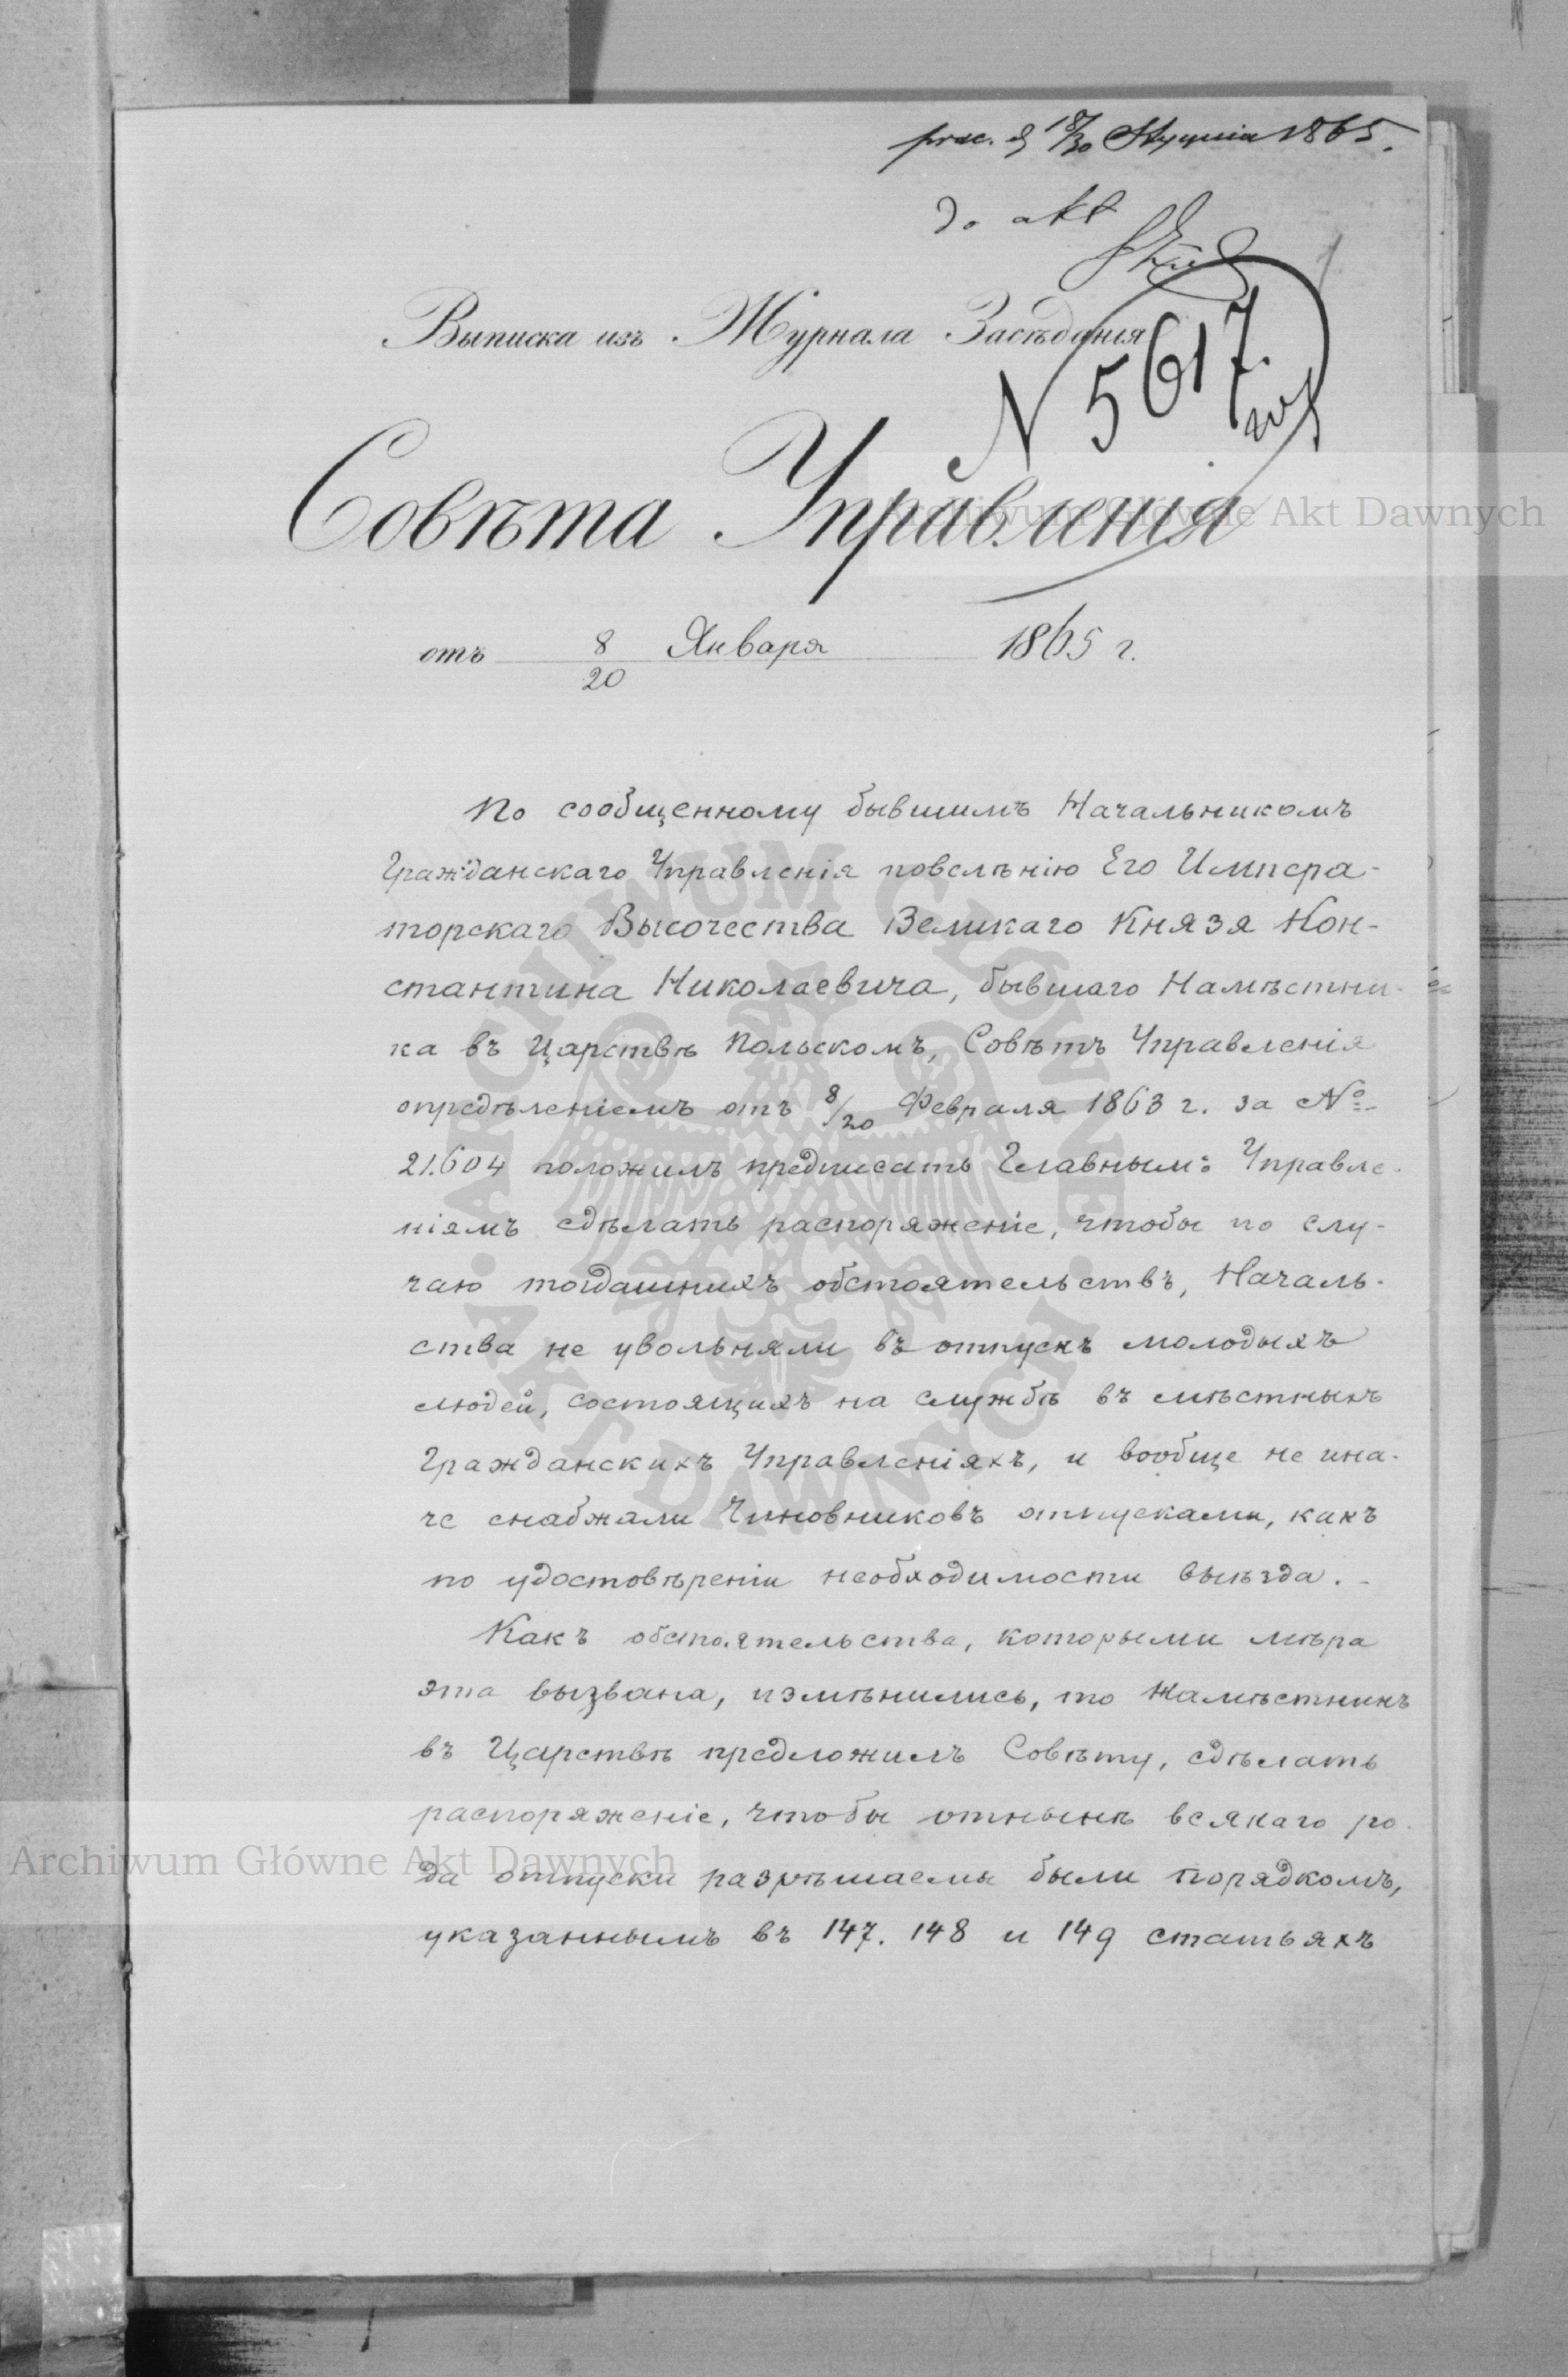 prac. d 18/30 Stycznia 1865.
do akt
Выписка изъ Журнала Засѣданія
N 5617
Совѣта Управленія
отъ 8/20 Января 1865 г.
По сообщенному бывшимъ Начальникомъ
Гражданскаго Управленія повелѣнію Его Импера-
торскаго Высочества Великаго Князя Кон-
стантина Николаевича, бывшаго Намѣстни-
ка въ Царствѣ Польскомъ, Совѣтъ Управленія
опредѣленіемъ отъ 8/20 Февраля 1863 г. за №
21.604 положилъ предписать Главнымъ Управле-
ніямъ сдѣлать распоряженіе, чтобы по слу-
чаю тогдашнихъ обстоятельствъ, Началь-
ства не увольняли въ отпускъ молодыхъ
людей, состоящихъ на службѣ въ мѣстныхъ
Гражданскихъ Управленіяхъ, и вообще не ина-
че снабжали Чиновниковъ отпусками, какъ
по удостовѣреніи необходимости выѣзда.
Какъ обстоятельства, которыми мѣра
эта вызвана, измѣнились, то Намѣстникъ
въ Царствѣ предложилъ Совѣту, сдѣлать
распоряженіе, чтобы отнынѣ всякаго ро-
да отпуски разрѣшаемы были порядкомъ,
указаннымъ въ 147. 148 и 149 статьяхъ
Archiwum Główne Akt Dawnych
Archiwum Główne Akt Dawnych
ARCHIWUM GŁÓWNE · AKT DAWNYCH ·